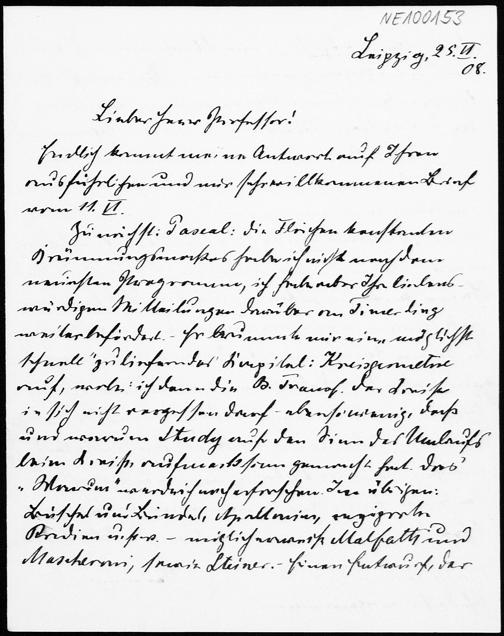 NE100153
Leipzig, 25. VI.
08.
Lieber Herr Professor!
Endlich kommt meine Antwort auf Ihren
ausführlichen und mir sehr willkommenen Brief
vom 11. VI.
Zunächst: Pascal: die Flächen konstanten
Krümmungsmaßes habe ich nicht nach dem
neuesten Programme, ich habe aber Ihre liebens-
würdigen Mitteilungen darüber an Timerding
weiterbefördert. - Er brummte mir ein „möglichst
schnell" zu lieferndes Kapitel: Kreisgeometrie
auf, wobei ich dann die B. Transf. der Kreise
in sich nicht vergessen darf - ebensowenig, daß
und warum Study auf den Sinn des Umlaufs
beim Kreise aufmerksam gemacht hat. Das
„Warum" werde ich noch erforschen. Im übrigen:
Büschel und Bündel, Apollonius, reziproke
Radien u.s.w. - möglicherweise Malfatti und
Mascheroni, sowie Steiner. - Einen Entwurf, der